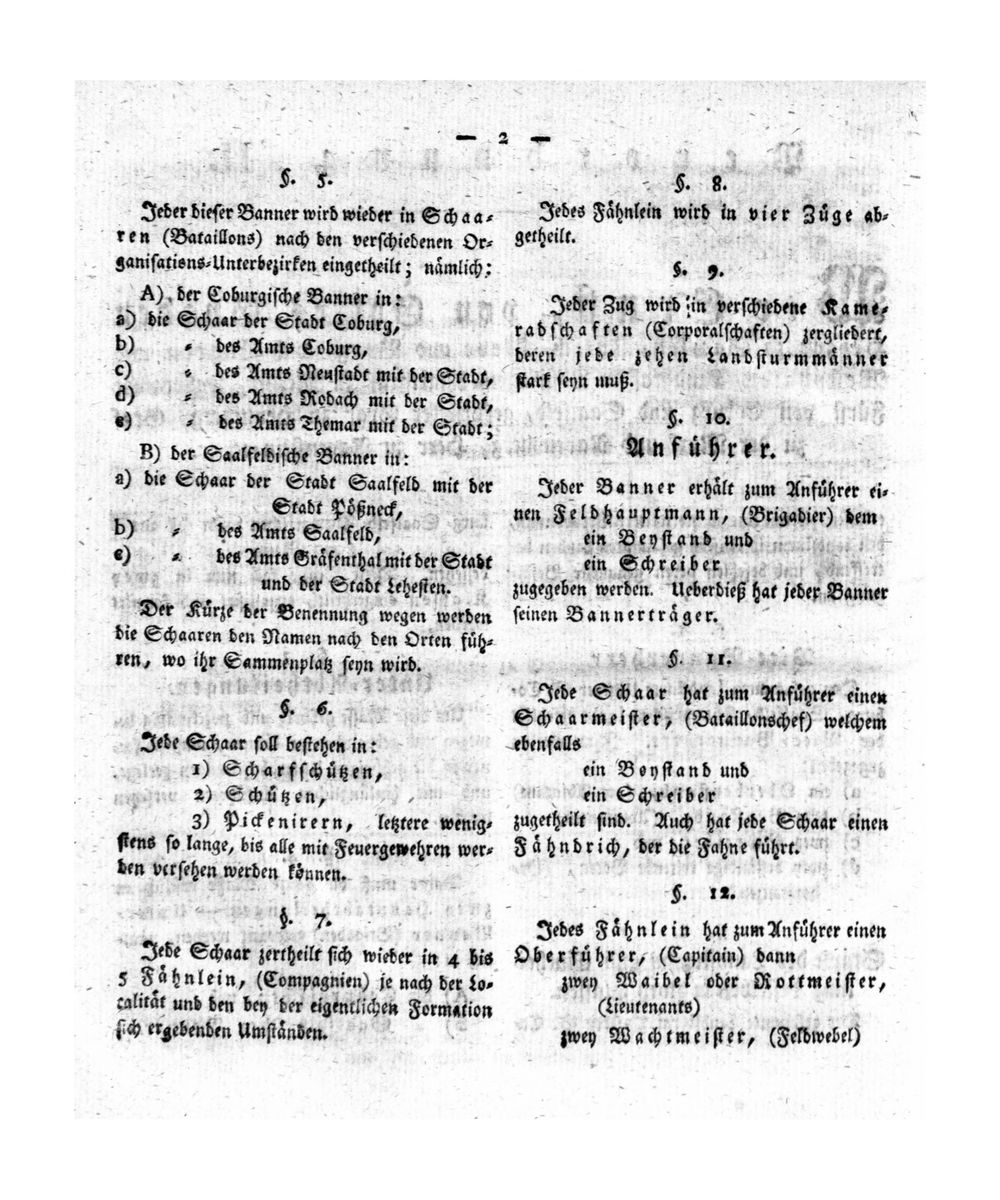 — 2 —
§. 5.
Jeder dieser Banner wird wieder in Schaa-
ren (Bataillons) nach den verschiedenen Or-
ganisations-Unterbezirken eingetheilt; nämlich:
A) der Coburgische Banner in:
a) die Schaar der Stadt Coburg,
b) „ des Amts Coburg,
c) „ des Amts Neustadt mit der Stadt,
d) „ des Amts Rodach mit der Stadt,
e) „ des Amts Themar mit der Stadt;
B) der Saalfeldische Banner in:
a) die Schaar der Stadt Saalfeld mit der
Stadt Pößneck,
b) „ des Amts Saalfeld,
c) „ des Amts Gräfenthal mit der Stadt
und der Stadt Lehesten.
Der Kürze der Benennung wegen werden
die Schaaren den Namen nach den Orten füh-
ren, wo ihr Sammenplatz seyn wird.
§. 6.
Jede Schaar soll bestehen in:
1) Scharfschützen,
2) Schützen,
3) Pickenirern, letztere wenig-
stens so lange, bis alle mit Feuergewehren wer-
den versehen werden können.
§. 7.
Jede Schaar zertheilt sich wieder in 4 bis
5 Fähnlein, (Compagnien) je nach der Lo-
calität und den bey der eigentlichen Formation
sich ergebenden Umständen.
§. 8.
Jedes Fähnlein wird in vier Züge ab-
getheilt.
§. 9.
Jeder Zug wird in verschiedene Kame-
radschaften (Corporalschaften) zergliedert,
deren jede zehen Landsturmmänner
stark seyn muß.
§. 10.
Anführer.
Jeder Banner erhält zum Anführer ei-
nen Feldhauptmann, (Brigadier) dem
ein Beystand und
ein Schreiber
zugegeben werden. Ueberdieß hat jeder Banner
seinen Bannerträger.
§. 11.
Jede Schaar hat zum Anführer einen
Schaarmeister, (Bataillonschef) welchem
ebenfalls
ein Beystand und
ein Schreiber
zugetheilt sind. Auch hat jede Schaar einen
Fähndrich, der die Fahne führt.
§. 12.
Jedes Fähnlein hat zum Anführer einen
Oberführer, (Capitain) dann
zwey Waibel oder Rottmeister,
(Lieutenants)
zwey Wachtmeister, (Feldwebel)